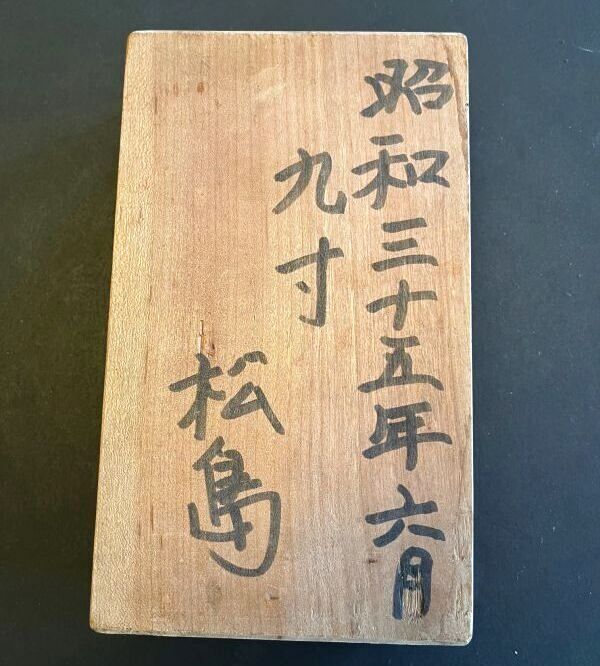 昭和三十五年六月
九寸
松島